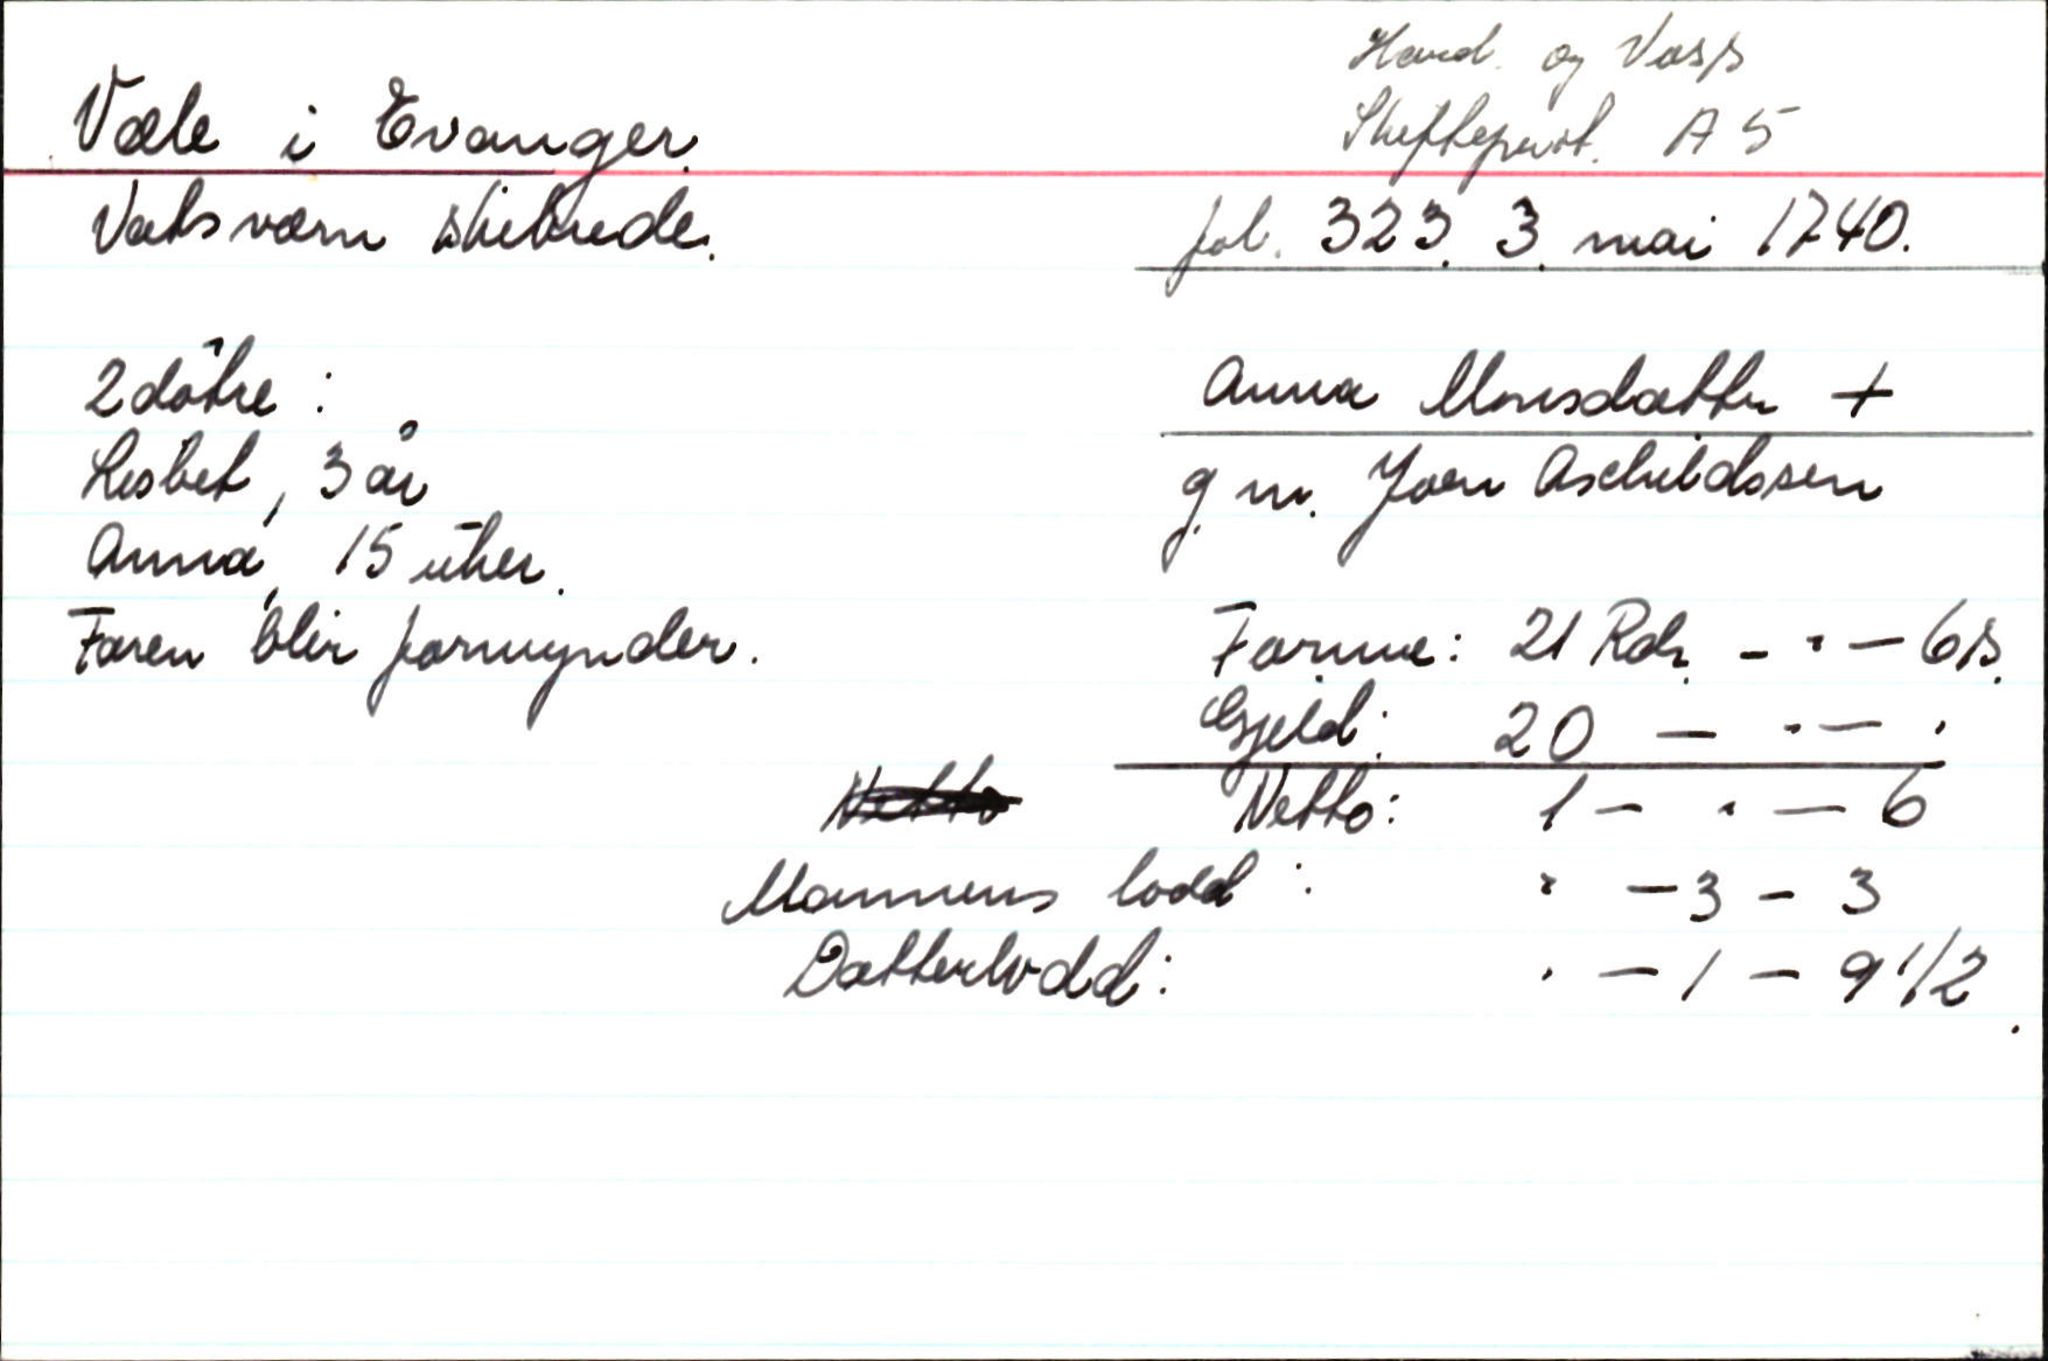 Hard. og Voss
Skifteprot. A 5
Væle i Evanger.
Vatsværn skibrede.
fol. 323. 3. mai 1740.
2 døtre :
Anna Monsdatter +
Lisbet, 3 år
g. m. Joen Aschildssen
Anna, 15 uker.
Faren blir formynder.
Formue: 21 Rdr. - " - 6 s.
Gjeld: 20 - " - "
Netto Netto: 1 - " - 6
Mannens lodd : " - 3 - 3
Datterlodd: " - 1 - 9 1/2.